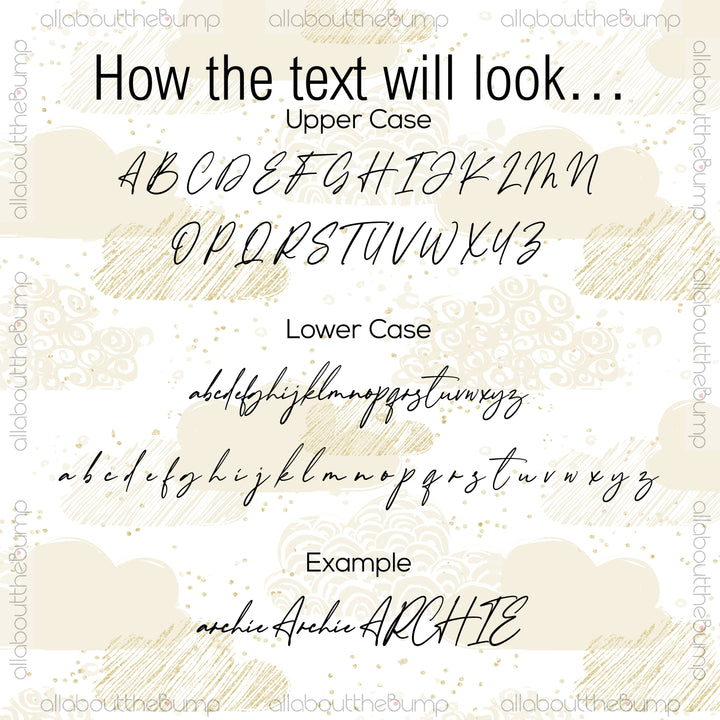 allabouttheBump allabouttheBump allabouttheBump
How the text will look...
Upper Case
A B C D E F G H I J K L M N
O P Q R S T U V W X Y Z
Lower Case
abcdefghijklmnopqrstuvwxyz
a b c d e f g h i j k l m n o p q r s t u v w x y z
Example
archie Archie ARCHIE
allabouttheBump allabouttheBump allabouttheBump
allabouttheBump
allabouttheBump
allabouttheBump
allabouttheBump
allabouttheBump
allabouttheBump